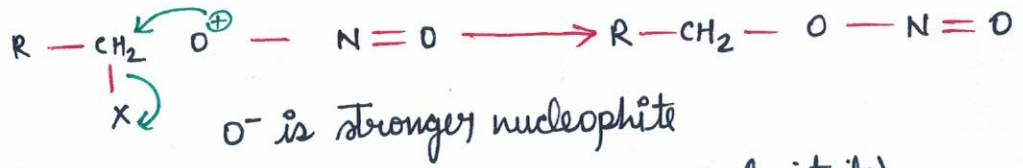 R — CH₂ O⊕ — N = O ⟶ R — CH₂ — O — N = O
X
O⁻ is stronger nucleophite